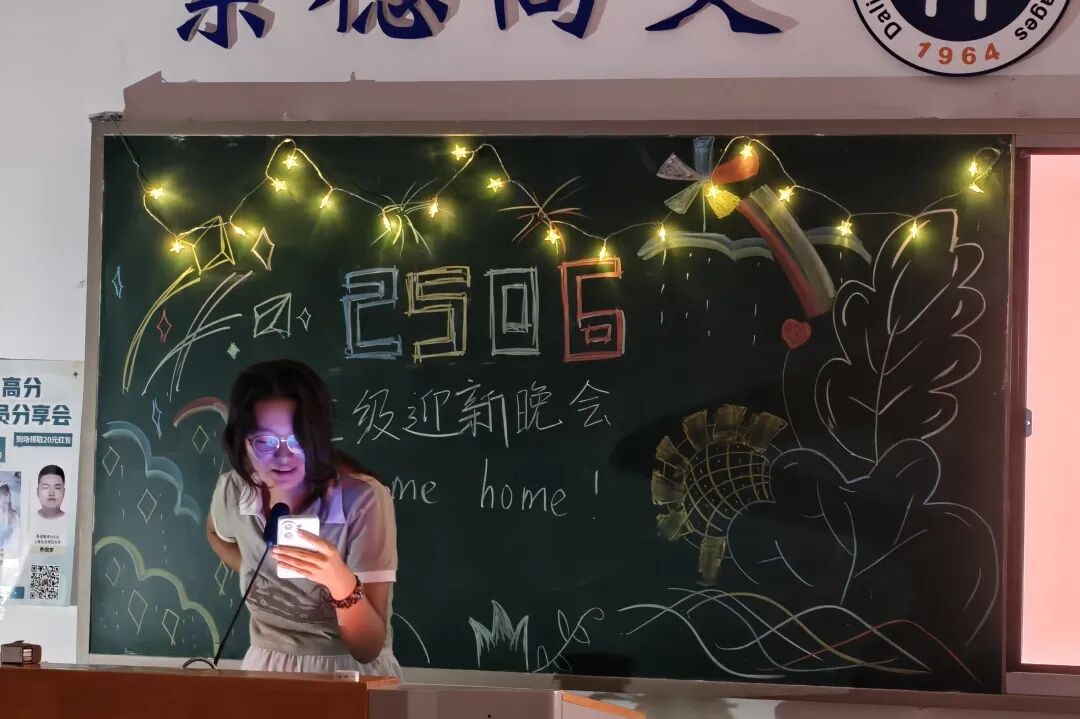 崇德尚文
Dali
ages
1964
2506
级迎新晚会
me home!
高分
员分享会
到场领取20元红包